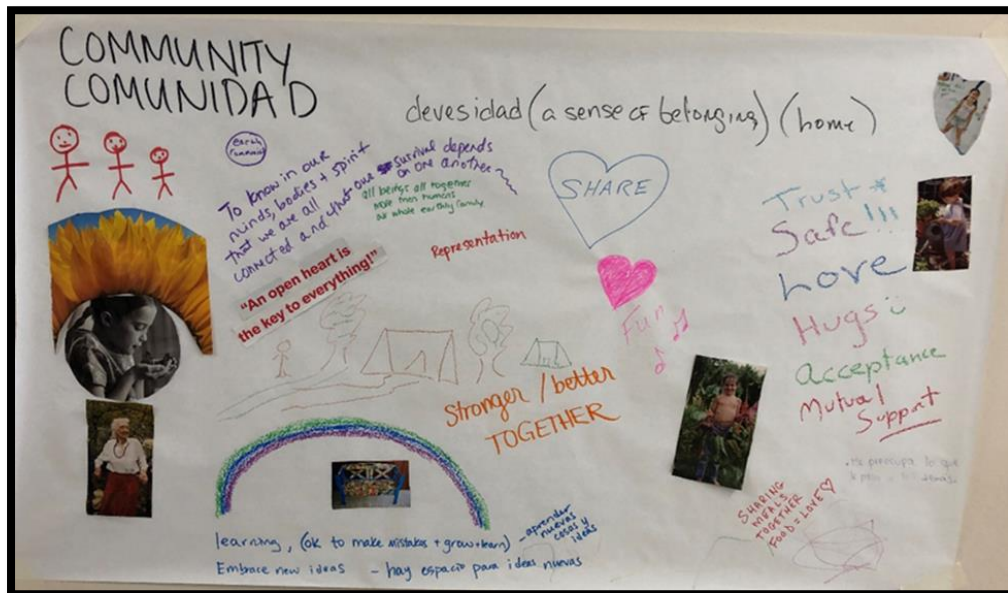 COMMUNITY
COMUNIDAD
devesidad (a sense of belonging) (home)
To know in our
minds, bodies + spirit
that we are all
connected and that our survival depends
on one another
all beings all together
more than humans
as whole earthly family
SHARE
Representation
"An open heart is
the key to everything!"
Fun
Trust *
Safe!!!
Love
Hugs
acceptance
Mutual
Support
Stronger / better
TOGETHER
SHARING
MEALS
TOGETHER
FOOD = LOVE
learning, (ok to make mistakes + grow + learn)
- aprender
nuevas
cosas y
ideas
Embrace new ideas - hay espacio para ideas nuevas